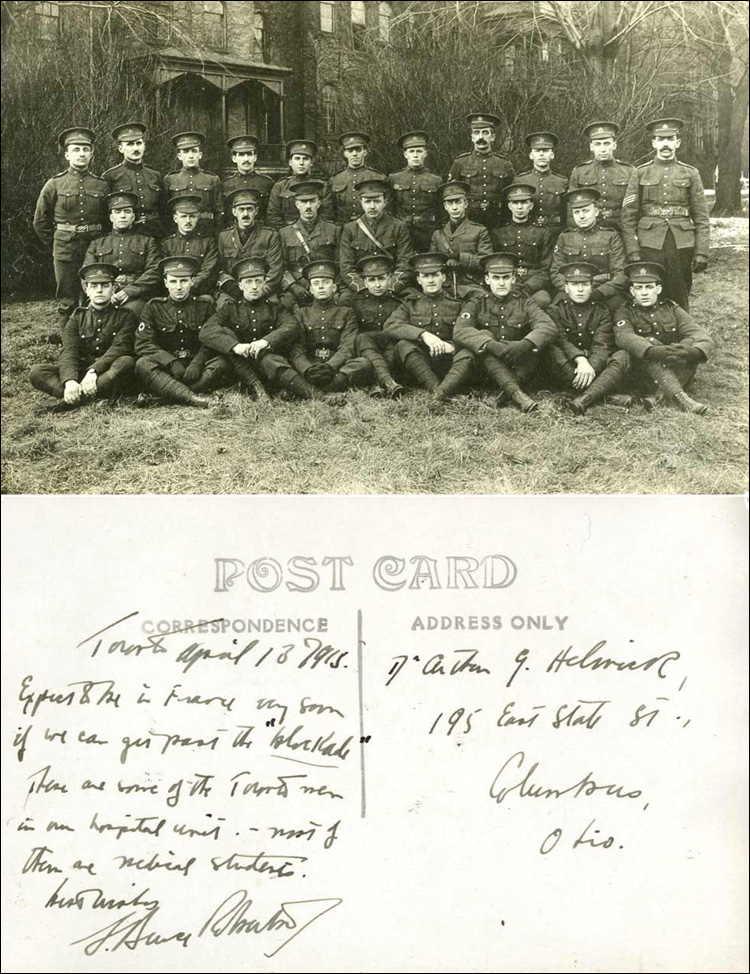 POST CARD
CORRESPONDENCE
ADDRESS ONLY
Toronto April 13 1915.
Expect to be in France very soon
if we can get past the "blockade"
These are some of the Toronto men
in our hospital unit. - most of
them are medical students.
best wishes
Bruce Robertson
Dr Arthur G. Helmick,
195 East State St.,
Columbus,
Ohio.